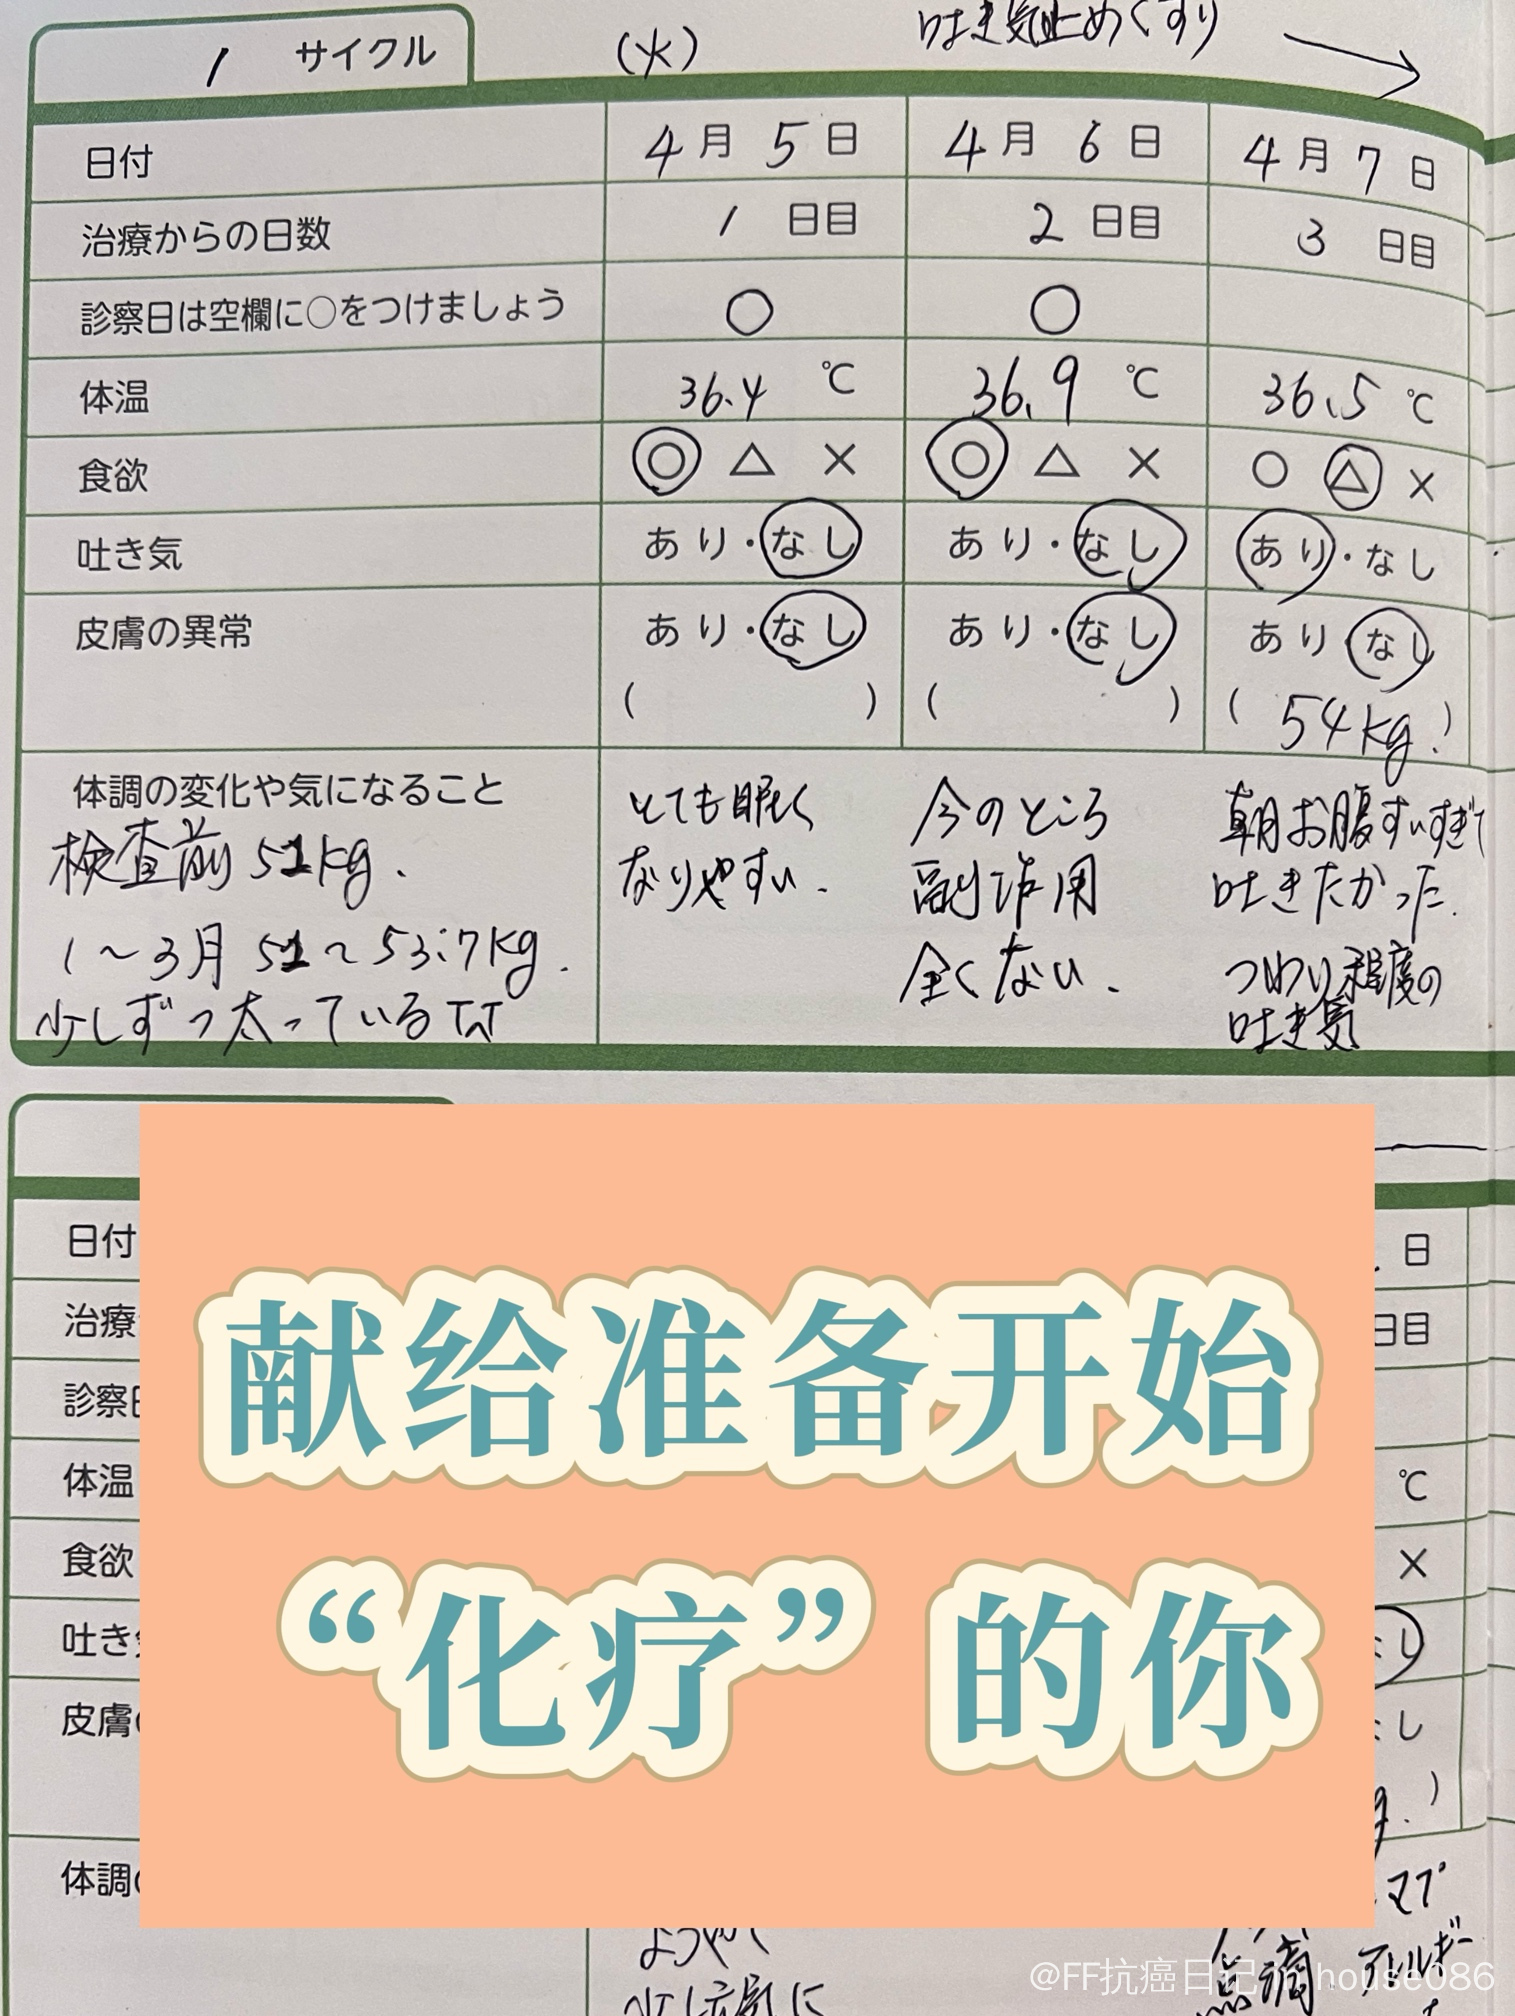 1 サイクル (火) 吐き気止めくすり
日付 4月5日 4月6日 4月7日
治療からの日数 1日目 2日目 3日目
診察日は空欄に○をつけましょう ○ ○
体温 36.4℃ 36.9℃ 36.5℃
食欲 ○ △ × ○ △ × ○ △ ×
吐き気 あり・なし あり・なし あり・なし
皮膚の異常 あり・なし あり・なし あり・なし
( ) ( ) (54kg.)
体調の変化や気になること
検査前 51kg.
1〜3月 51〜53.7kg.
少しずつ太っている
とても眠く
なりやすい.
今のところ
副作用
全くない.
朝お腹すいすぎて
吐きたかった.
つわり程度の
吐き気
献给准备开始
“化疗”的你
日付 日
治療 日目
診察
体温 ℃
食欲 ×
吐き
皮膚 なし
)
体調
マブ
ようやく
少し元気に
点滴 アレルギー
@FF抗癌日记in house086